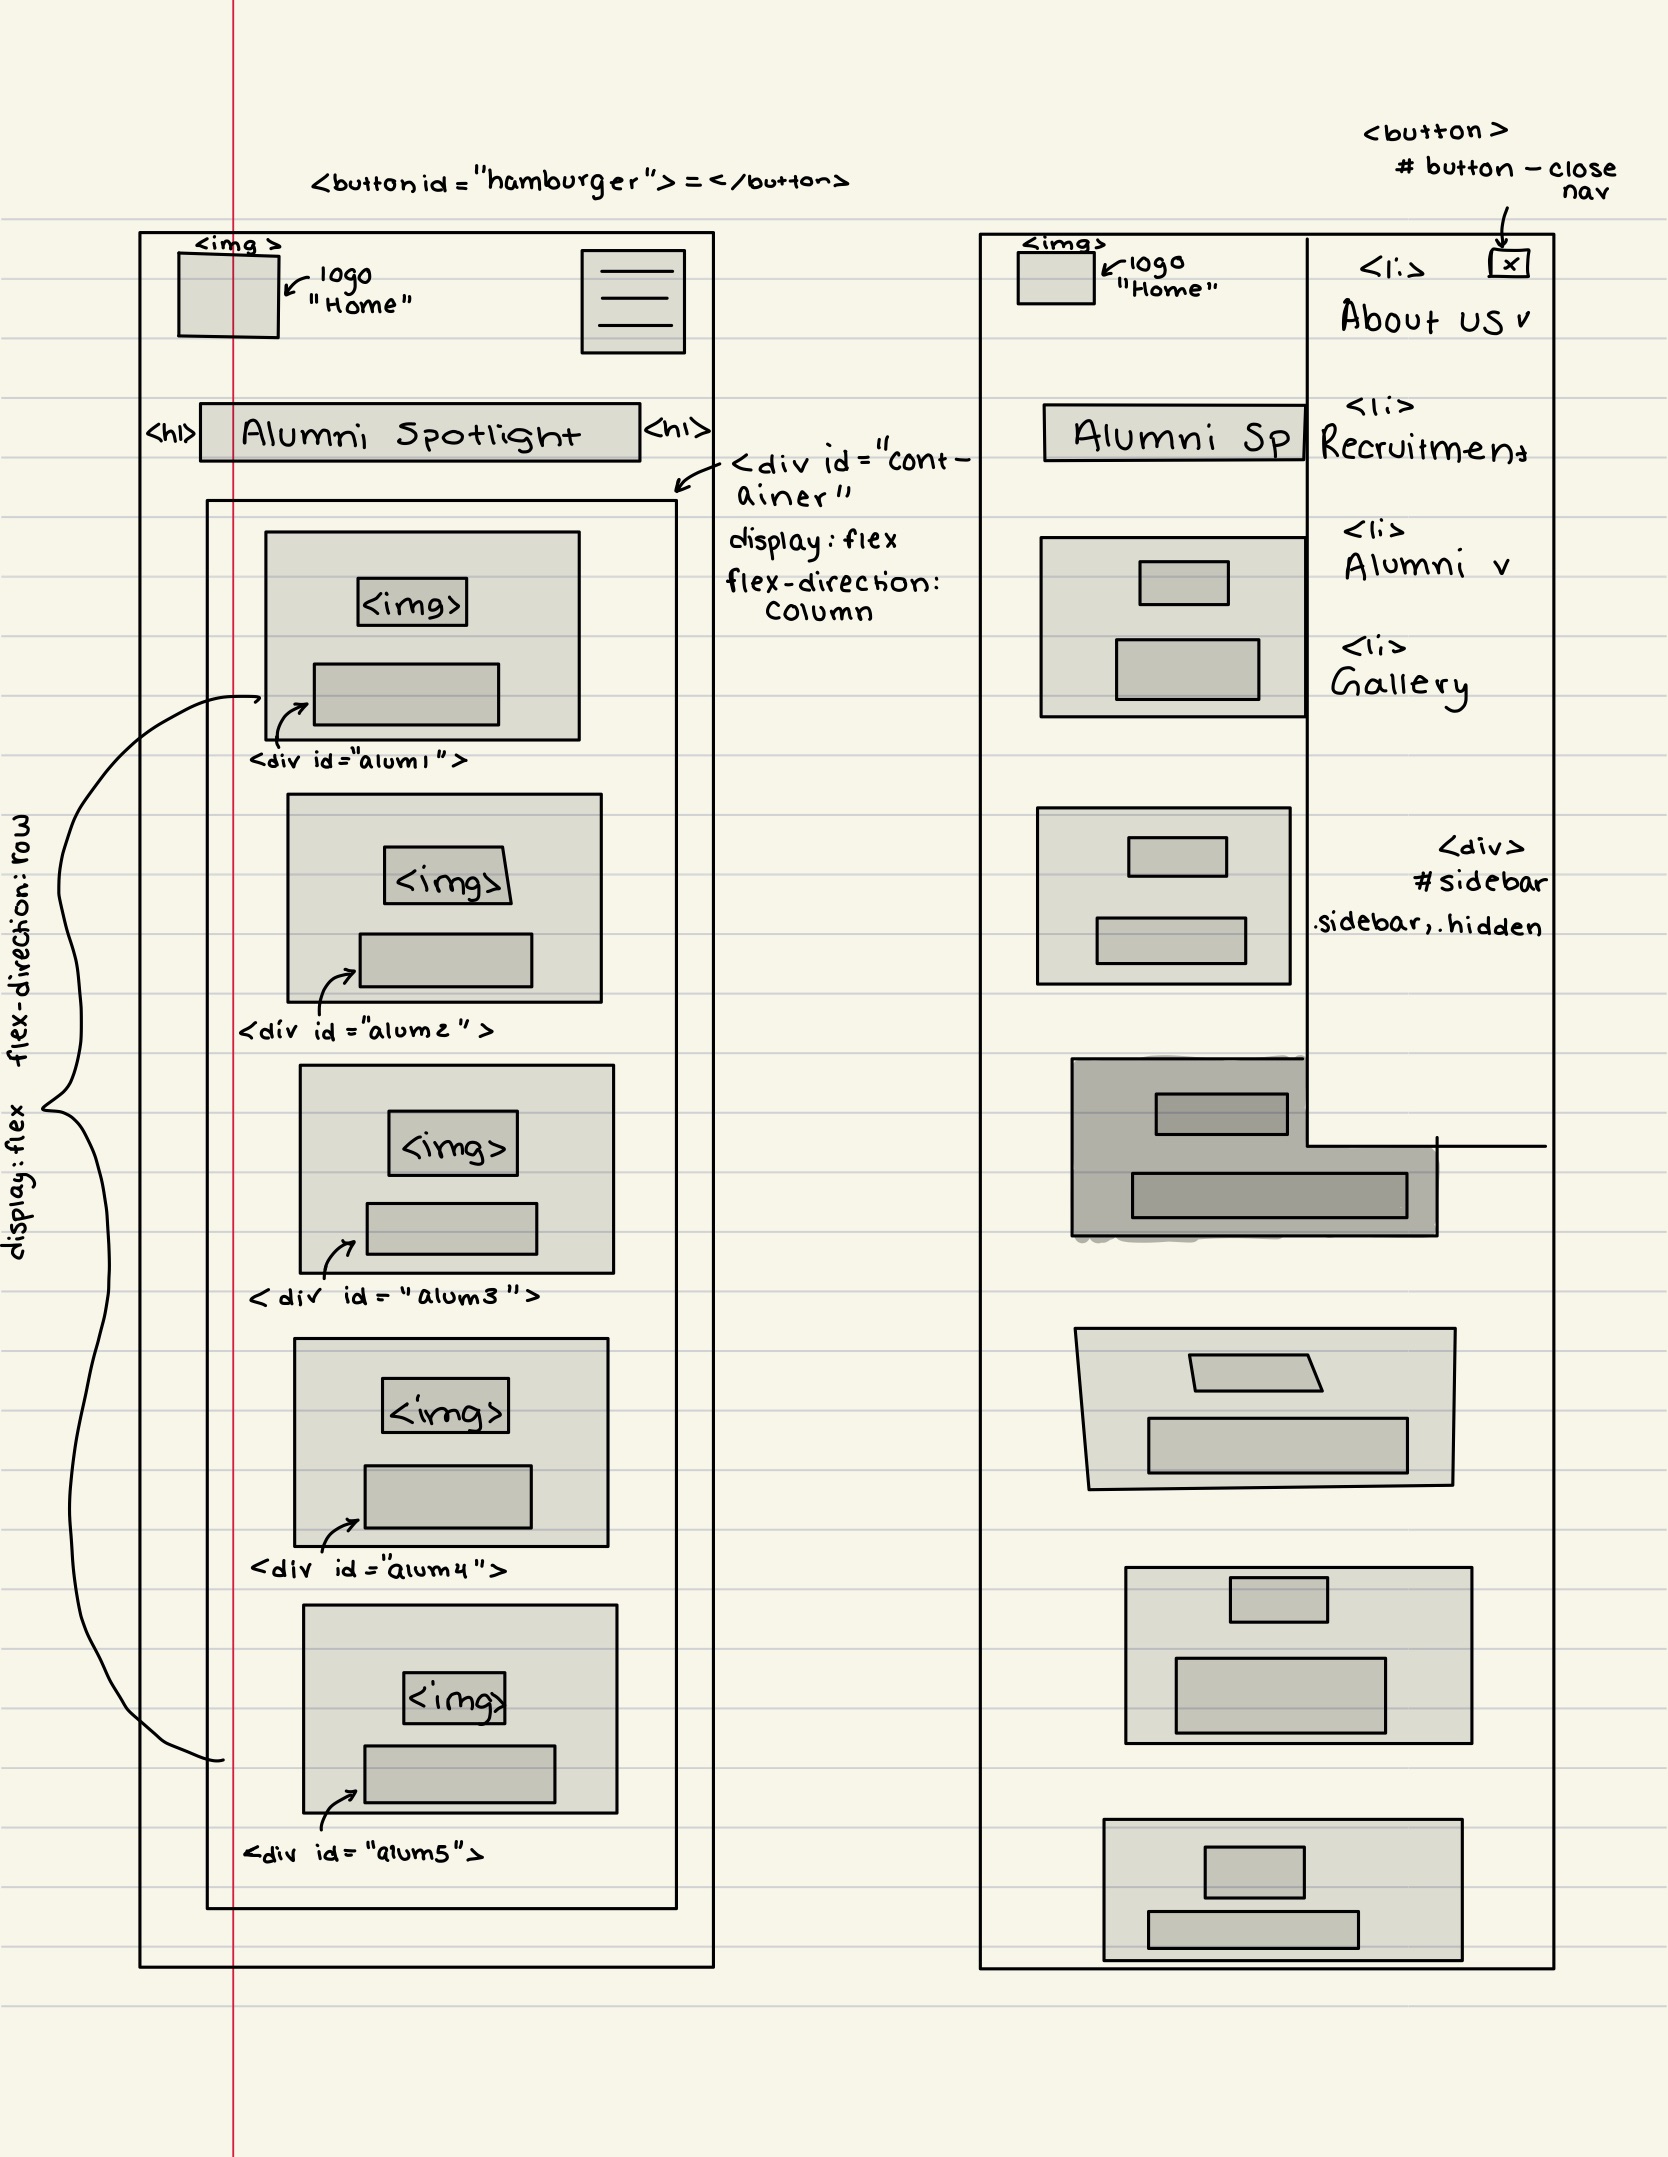 <button id="hamburger">=</button>
<img>
logo
"Home"
<h1> Alumni Spotlight <h1>
<div id="cont-
ainer"
display: flex
flex-direction:
column
<img>
<div id="alum1">
<img>
<div id="alum2">
<img>
<div id="alum3">
<img>
<div id="alum4">
<img>
<div id="alum5">
display: flex flex-direction: row
<button>
# button - close
nav
x
<img>
logo
"Home"
<li>
About us v
Alumni Sp
<li>
Recruitment
<li>
Alumni v
<li>
Gallery
<div>
#sidebar
.sidebar, .hidden